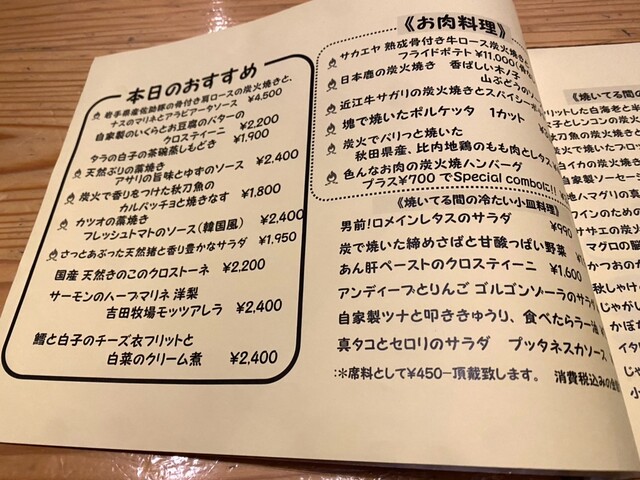 本日のおすすめ
岩手県産佐助豚の骨付き肩ロースの炭火焼きと、
ナスのマリネとアラビアータソース ¥4,500
自家製のいくらとお豆腐のバターの
クロスティーニ ¥2,200
タラの白子の茶碗蒸しもどき ¥1,900
天然ぶりの藁焼き
アサリの旨味とゆずのソース ¥2,400
炭火で香りをつけた秋刀魚の
カルパッチョと焼きなす ¥1,800
カツオの藁焼き
フレッシュトマトのソース(韓国風) ¥2,400
さっとあぶった天然猪と香り豊かなサラダ ¥1,950
国産 天然きのこのクロストーネ ¥2,200
サーモンのハーブマリネ 洋梨
吉田牧場モッツアレラ ¥2,400
鱈と白子のチーズ衣フリットと
白菜のクリーム煮 ¥2,400
《お肉料理》
サカエヤ 熟成骨付き牛ロース炭火焼き
フライドポテト ¥11,000
日本鹿の炭火焼き 香ばしいキノコ
山ぶどうの
近江牛サガリの炭火焼きとスパイシーポ
塊で焼いたポルケッタ 1カット ¥
炭火でパリっと焼いた
秋田県産、比内地鶏のもも肉とレタス
色んなお肉の炭火焼ハンバーグ
プラス¥700 でSpecial comboに!!
《焼いてる間の冷たい小皿料理》
男前!ロメインレタスのサラダ ¥990
炭で焼いた締めさばと甘酸っぱい野菜
あん肝ペーストのクロスティーニ ¥1,600
アンディーブとりんご ゴルゴンゾーラのサラ
自家製ツナと叩ききゅうり、食べたらラー油
真タコとセロリのサラダ プッタネスカソース
※席料として¥450-頂戴致します。 消費税込みの金
《焼いてる間の
フリットした白海老と半
子とレンコンの炭火
刀魚の炭火焼き